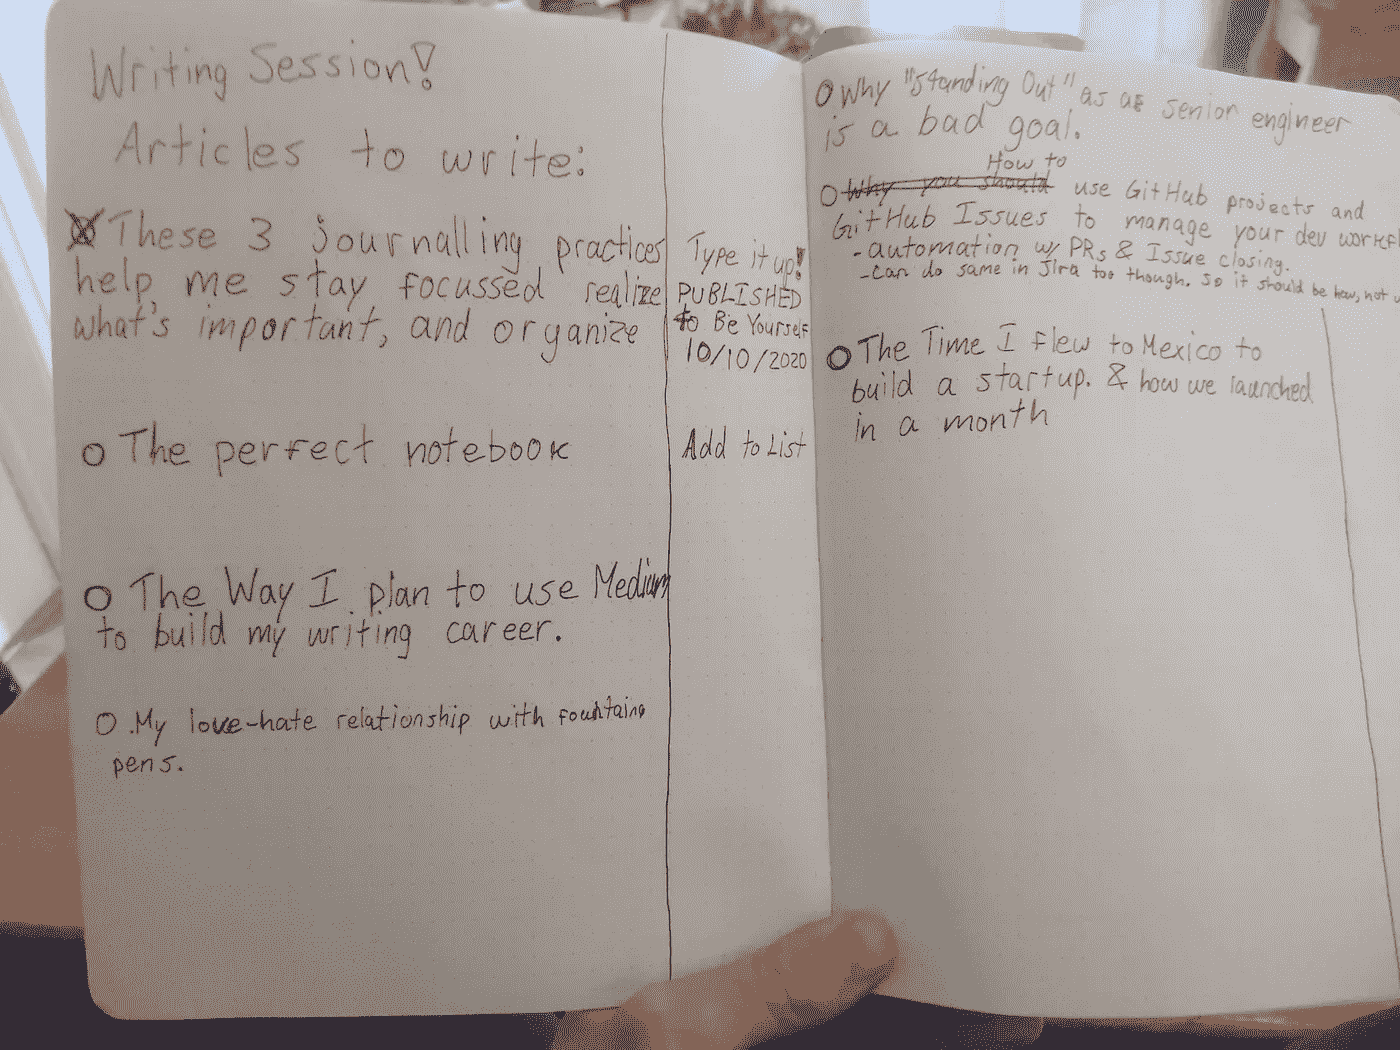 Writing Session!
Articles to write:
These 3 journalling practices
help me stay focussed realize
what's important, and organize
Type it up!
PUBLISHED
to Be Yourself
10/10/2020
The perfect notebook
Add to List
The Way I plan to use Medium
to build my writing career.
My love-hate relationship with fountain
pens.
Why "Standing Out" as a senior engineer
is a bad goal.
How to
Why you should use GitHub projects and
GitHub Issues to manage your dev
-automation w/ PRs & Issue closing.
-Can do same in Jira too though. So it should be how, not
The Time I Flew to Mexico to
build a startup. & how we launched
in a month